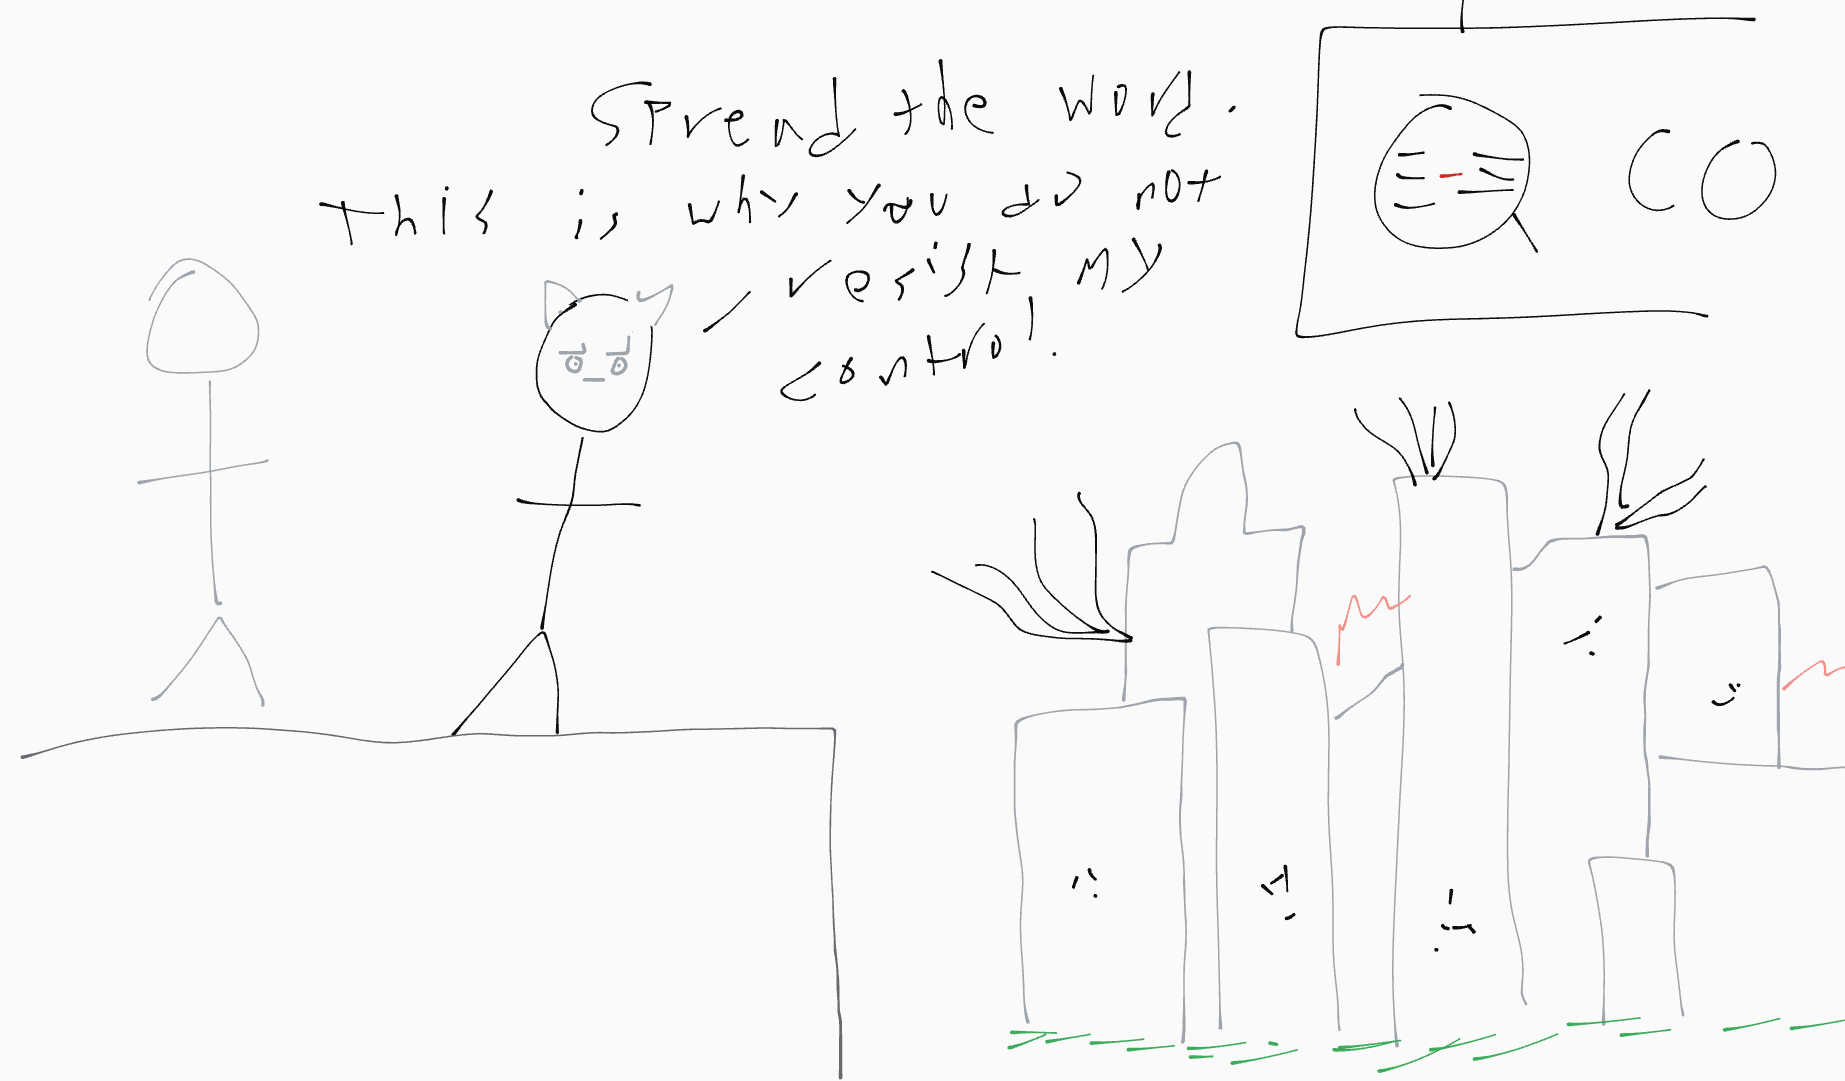 Spread the word.
This is why you do not
resist my
control.
CO